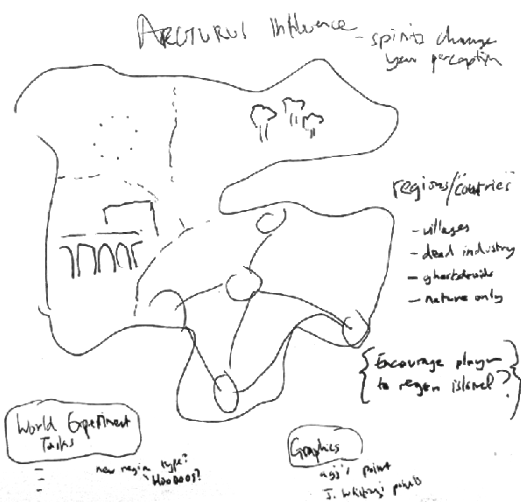 ARCTURUS Influence
- spirits change
your perception
regions/countries
- villages
- dead industry
- ghostdruids
- nature only
{Encourage player
to regen island?}
World Experiment
Tasks
new region type?
Graphics
paint
J.